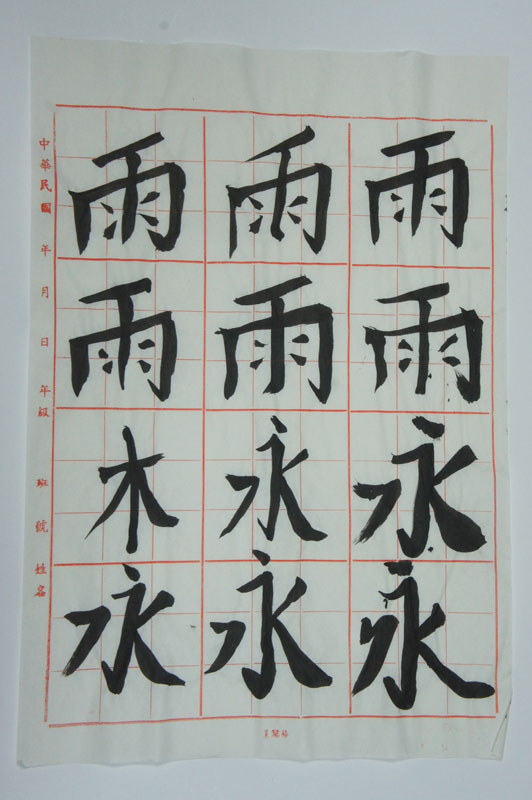 雨 雨 雨
雨 雨 雨
木 永 永
永 永 永
中華民國 年 月 日 年級 班 號 姓名